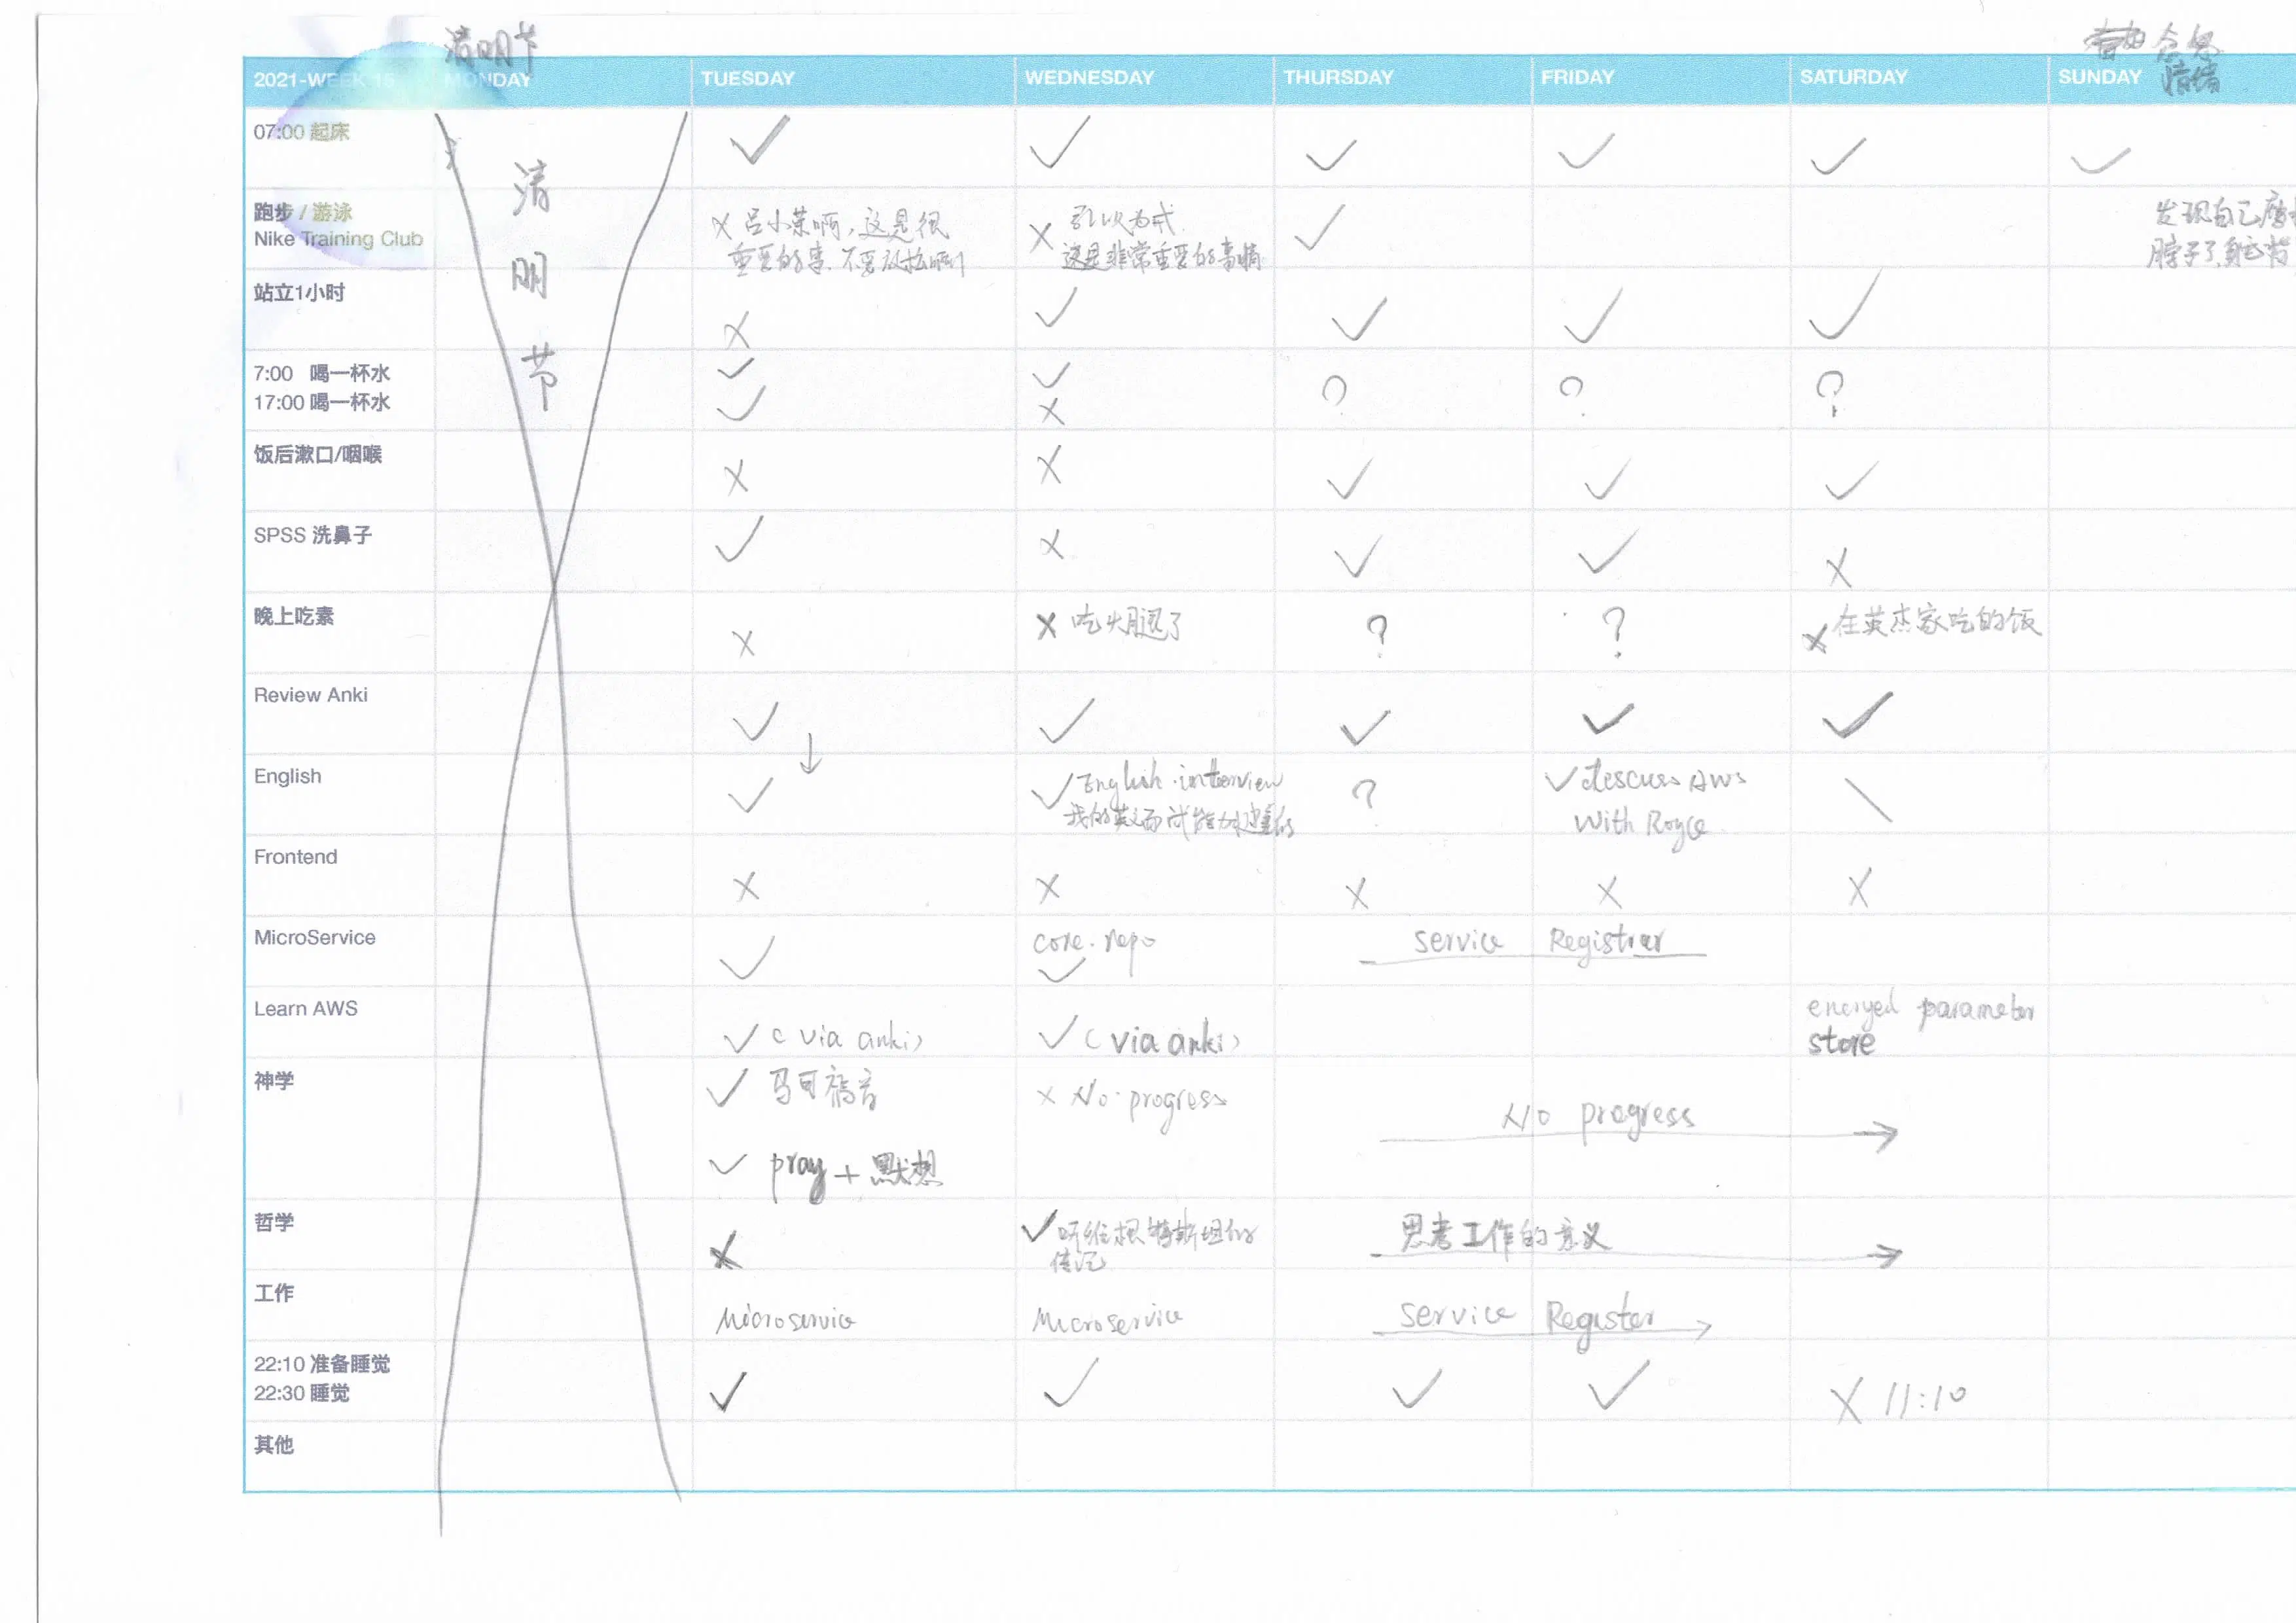 清明节
情绪
2021-WEEK 15 MONDAY TUESDAY WEDNESDAY THURSDAY FRIDAY SATURDAY SUNDAY
07:00 起床 ✓ ✓ ✓ ✓ ✓ ✓
清明节
跑步 / 游泳
Nike Training Club
✗ 吕小荣啊,这是很
重要的事、不要放松啊!
✗ 引以为戒.
这是非常重要的事情
✓
发现自己
脖子了
站立1小时 ✗ ✓ ✓ ✓ ✓
7:00 喝一杯水 ✓ ✓ ? ? ?
17:00 喝一杯水 ✓ ✗
饭后漱口/咽喉 ✗ ✗ ✓ ✓ ✓
SPSS 洗鼻子 ✓ ✗ ✓ ✓ ✗
晚上吃素 ✗ ✗ 吃火腿了 ? ? ✗ 在英杰家吃的饭
Review Anki ✓ ✓ ✓ ✓ ✓
English ✓ ↓ ✓ English interview ? ✓ descuss AWS \
我的英文面试能力
With Royce
Frontend ✗ ✗ ✗ ✗ ✗
MicroService ✓ core.repo ✓ service Registrer
Learn AWS ✓ (via anki) ✓ (via anki) encryed parameter
store
神学 ✓ 马可福音 × No progress No progress →
✓ pray + 默想
哲学 ✗ ✓ 听维根特斯坦的 思考工作的意义 →
传记
工作 Microservice Microservice service Register →
22:10 准备睡觉
22:30 睡觉 ✓ ✓ ✓ ✓ ✗ 11:10
其他